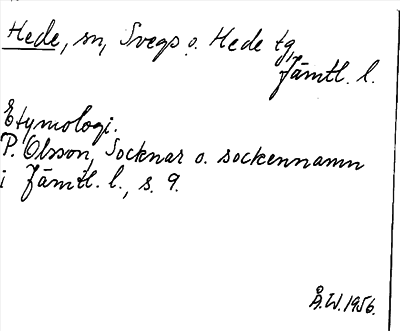 Hede, sn, Svegs o. Hede tg,
Jämtl. l.
Etymologi.
P. Olsson, Socknar o. sockennamn
i Jämtl. l., s. 9.
Å.W. 1956.